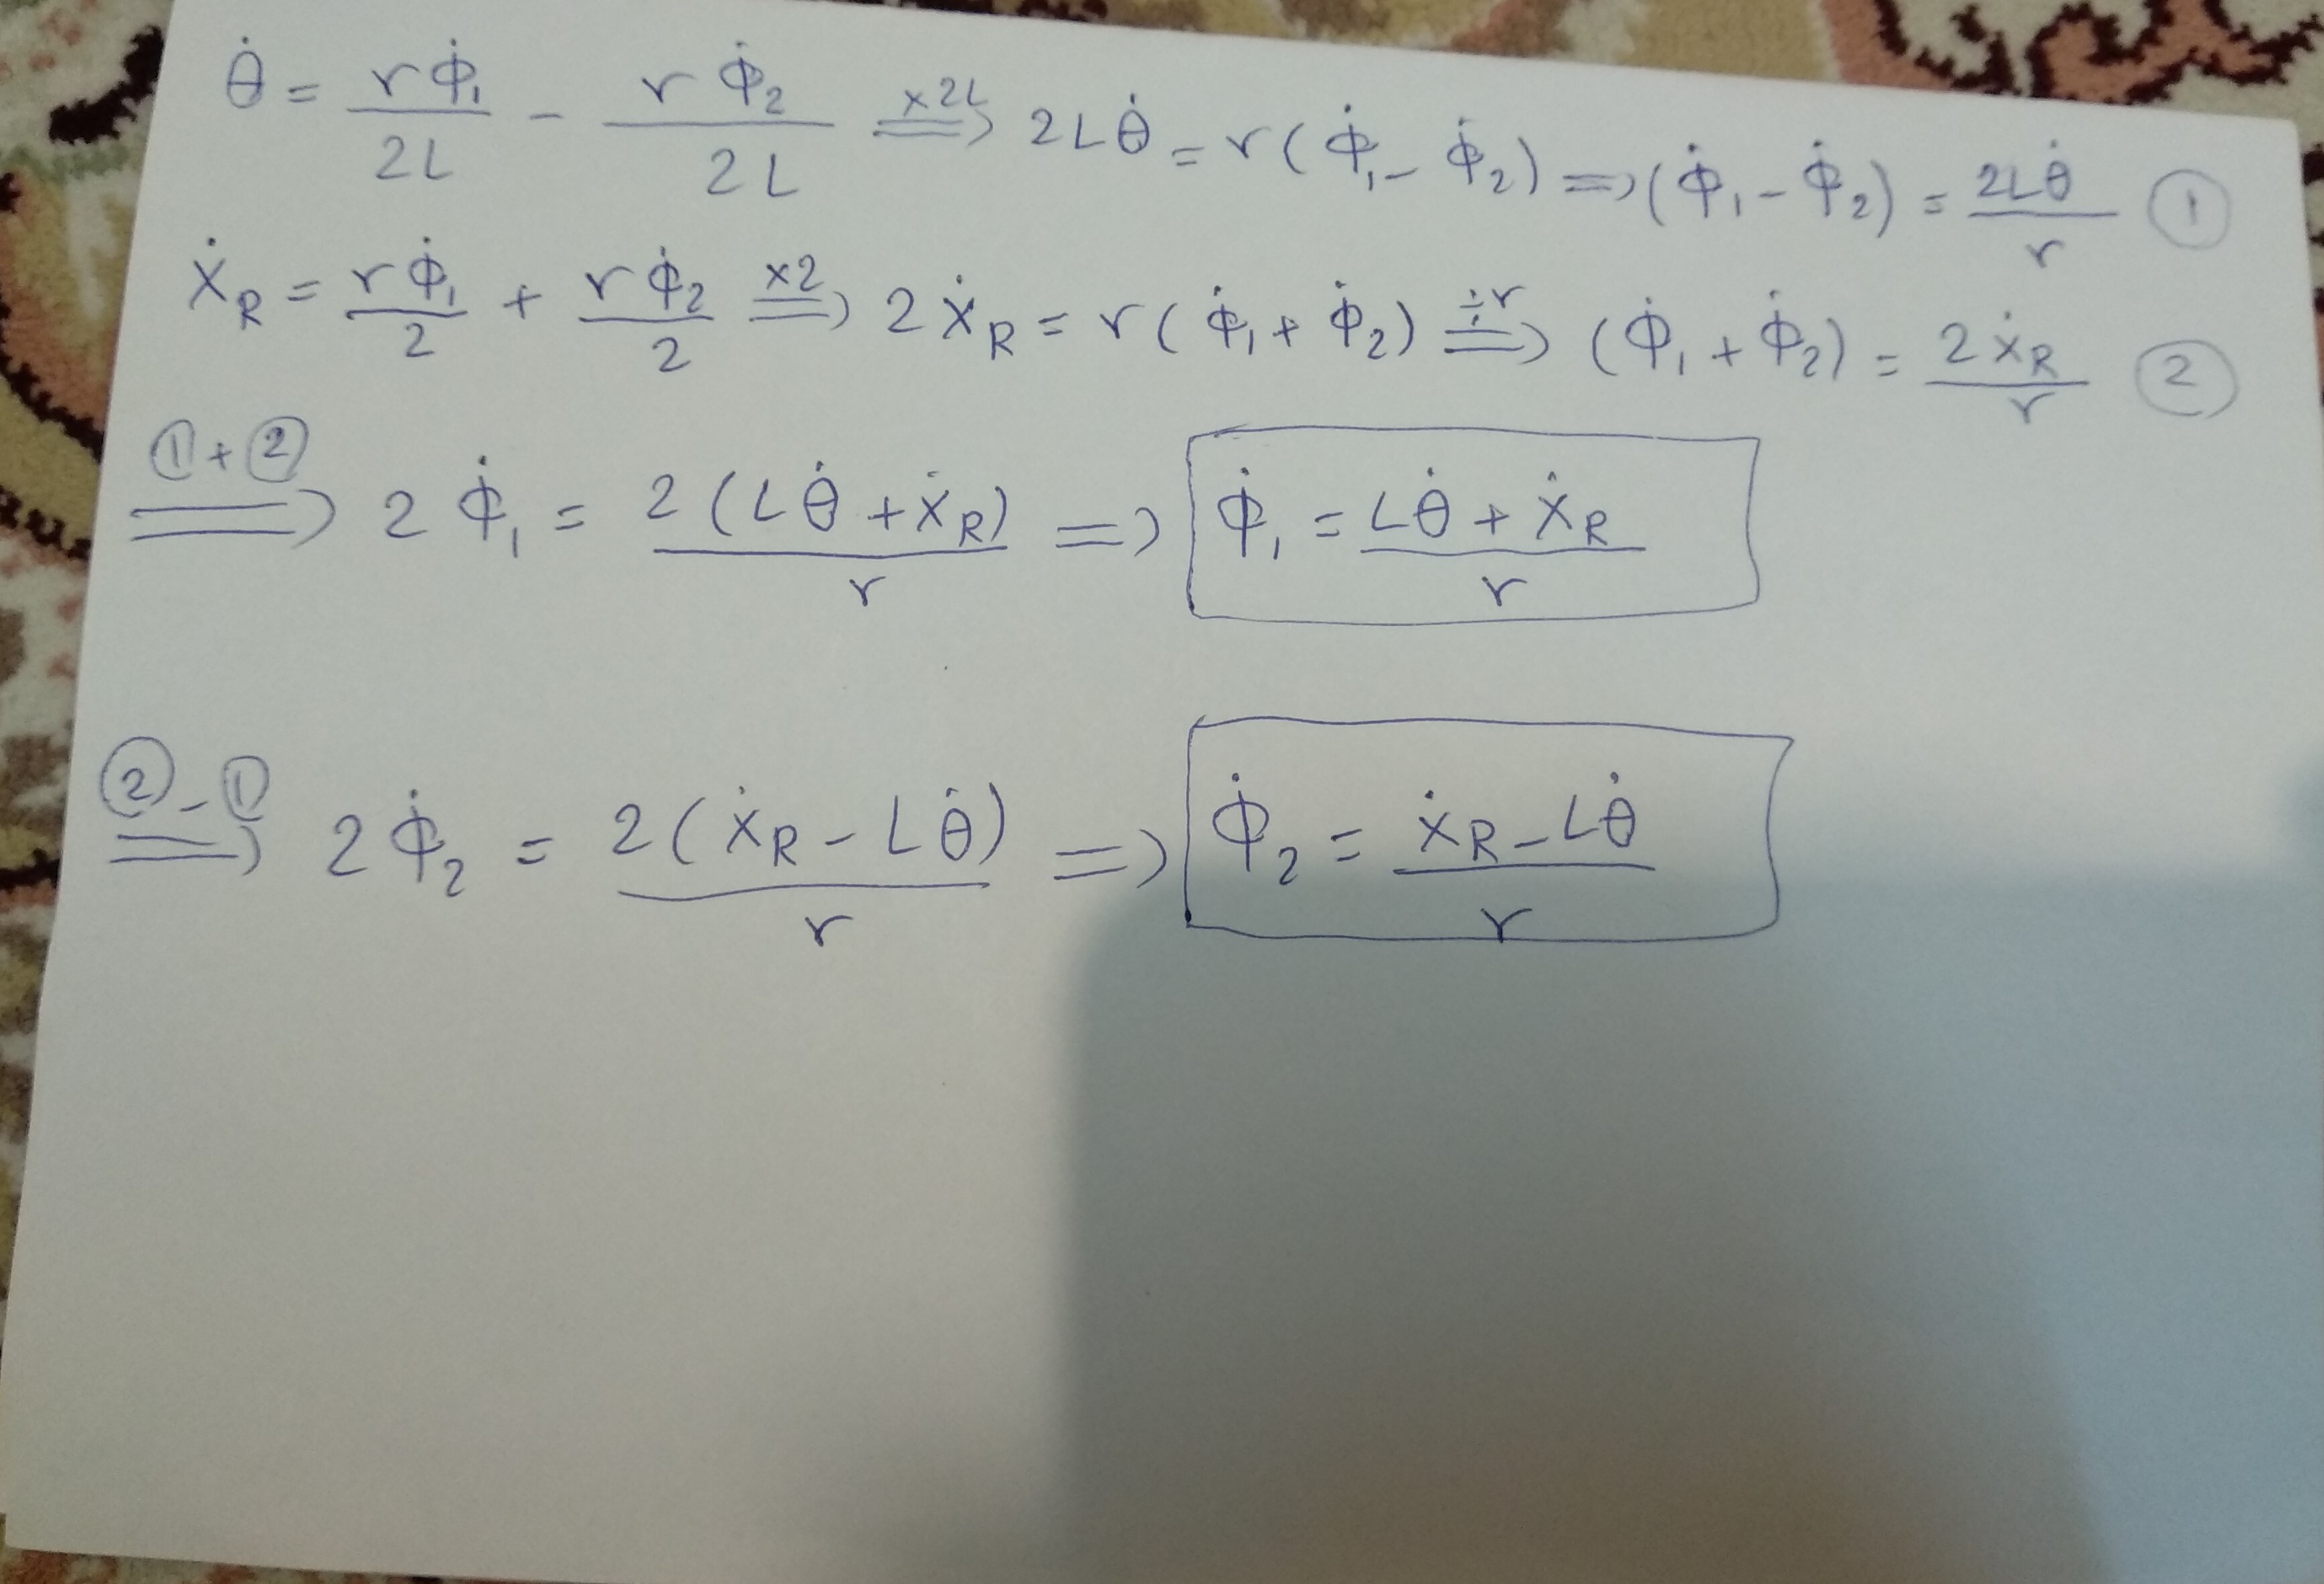 θ̇ = rφ̇₁/2L - rφ̇₂/2L =×2L=> 2Lθ̇ = r(φ̇₁ - φ̇₂) => (φ̇₁ - φ̇₂) = 2Lθ̇/r ①
ẋ_R = rφ̇₁/2 + rφ̇₂/2 =×2=> 2ẋ_R = r(φ̇₁ + φ̇₂) =÷r=> (φ̇₁ + φ̇₂) = 2ẋ_R/r ②
=①+②=> 2φ̇₁ = 2(Lθ̇ + ẋ_R)/r => φ̇₁ = (Lθ̇ + ẋ_R)/r
=②-①=> 2φ̇₂ = 2(ẋ_R - Lθ̇)/r => φ̇₂ = (ẋ_R - Lθ̇)/r